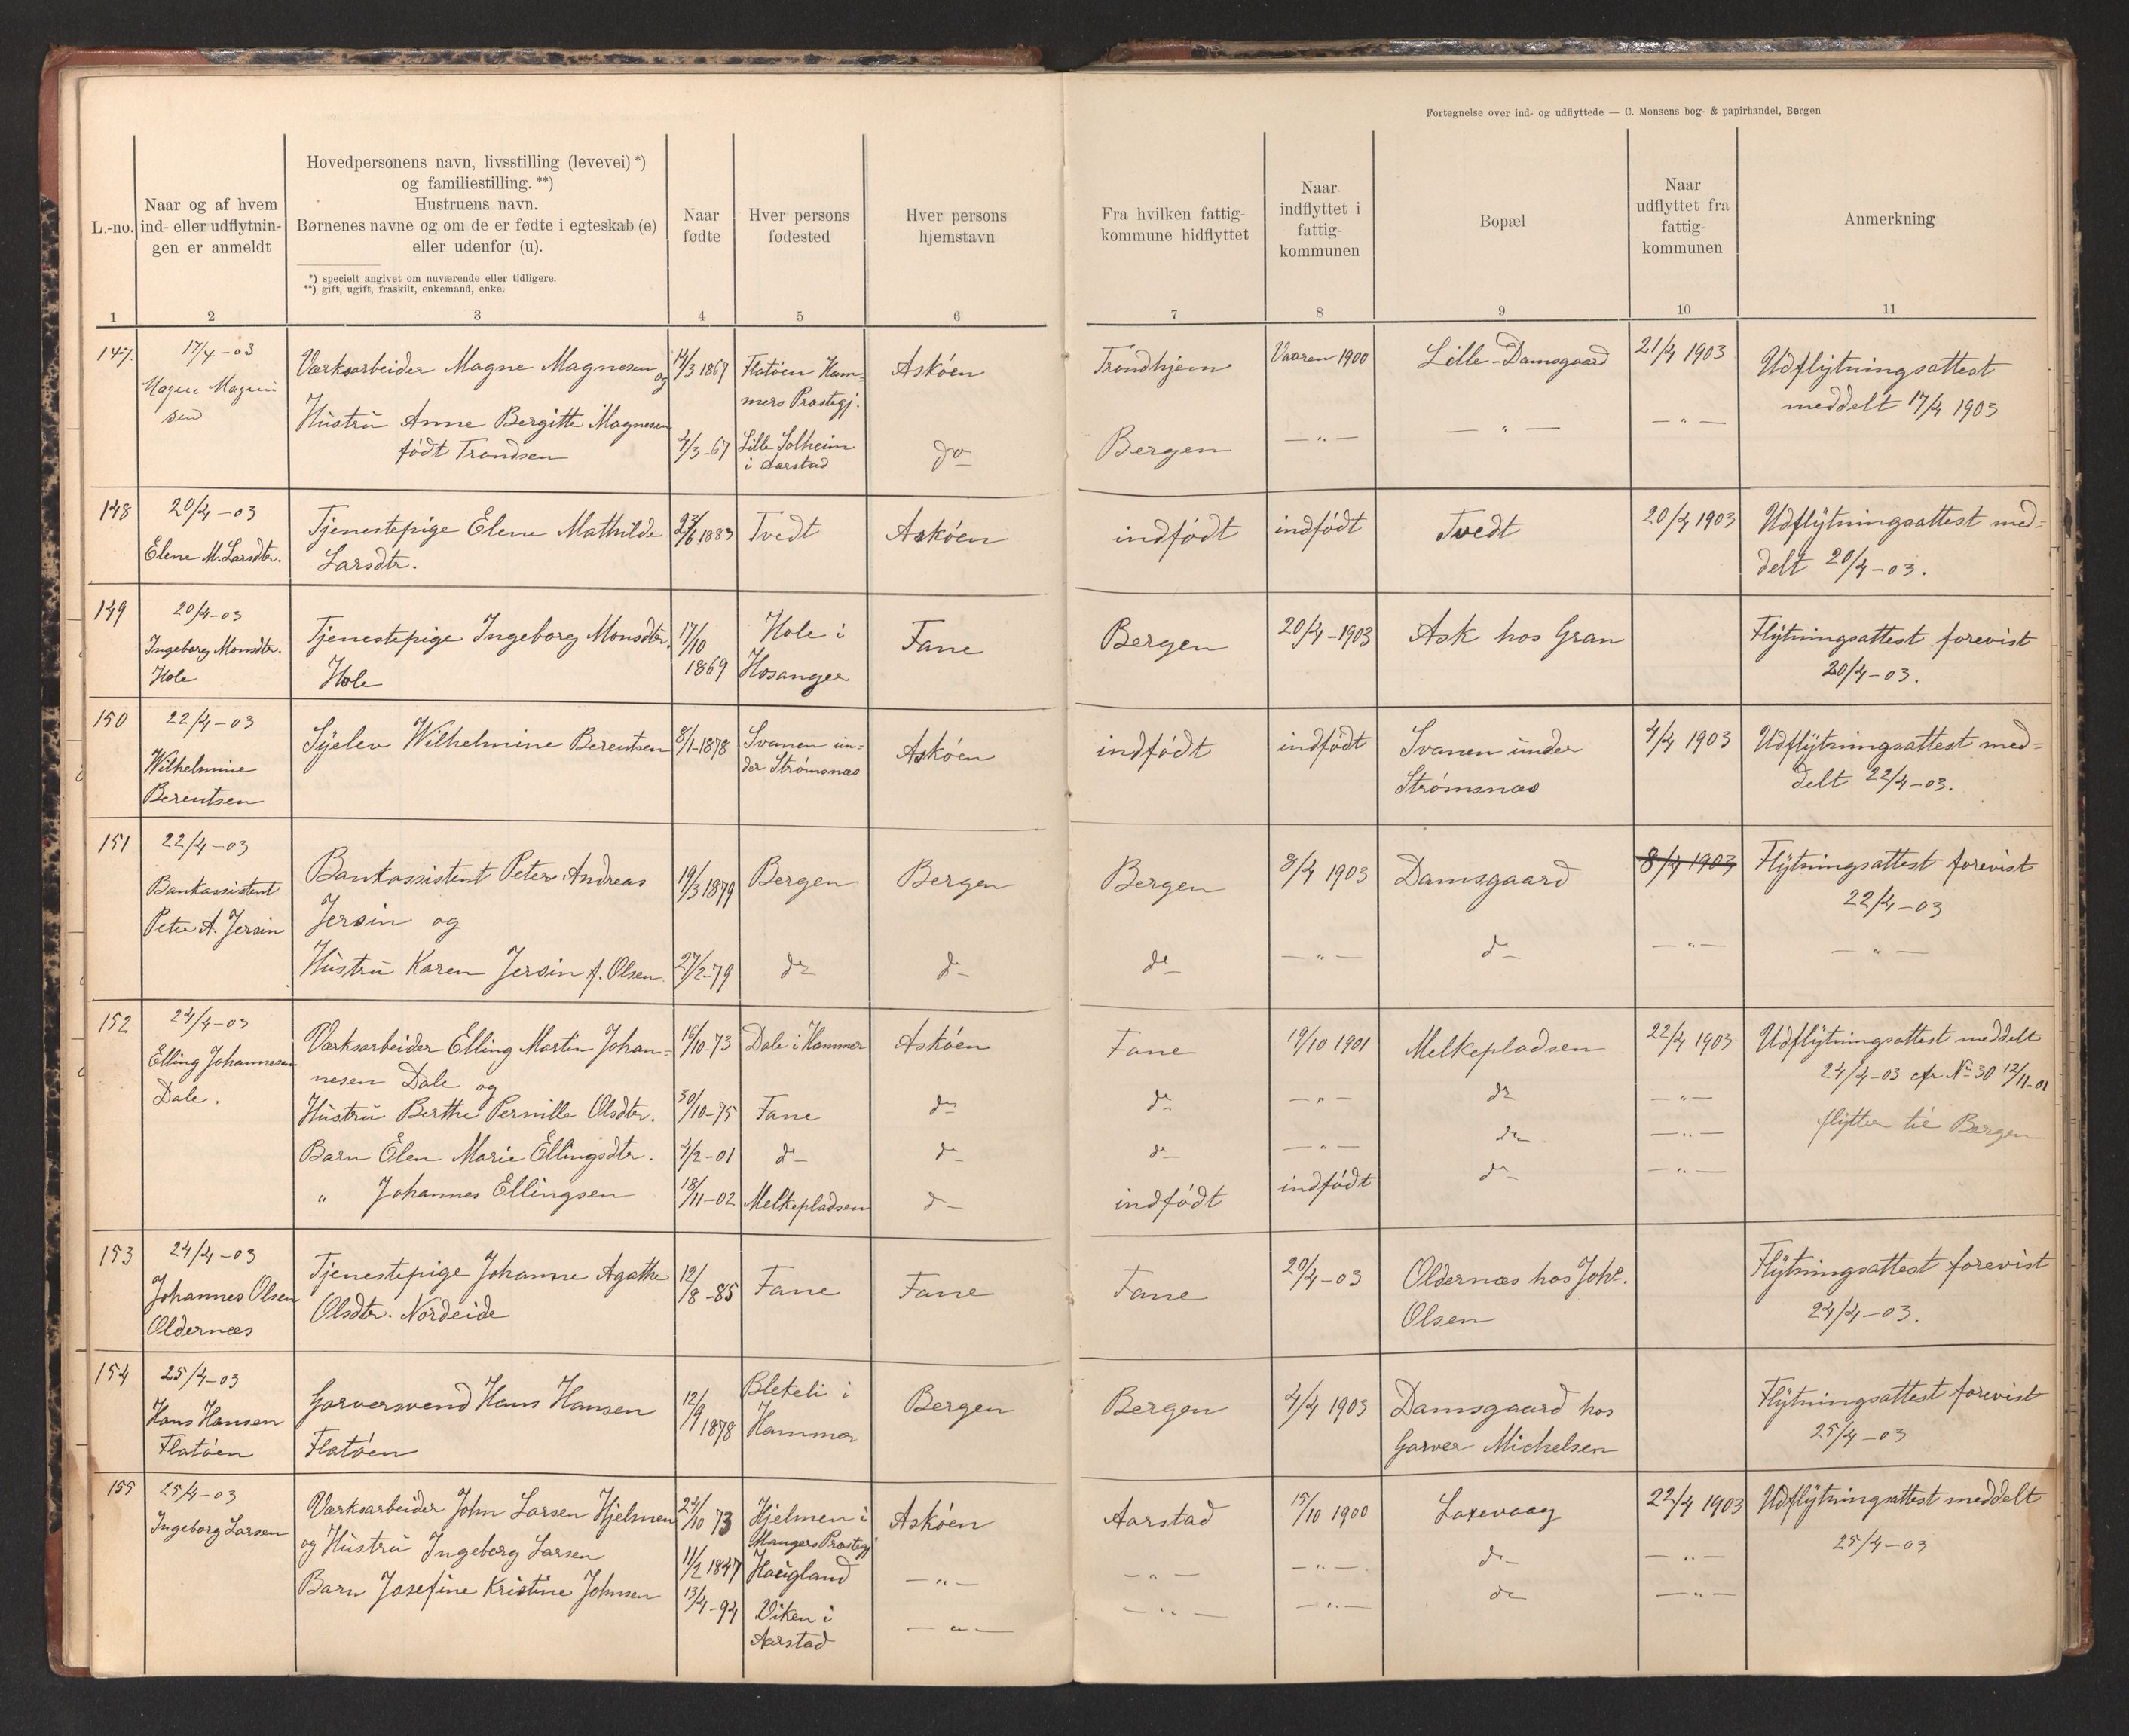 Fortegnelse over ind- og udflyttede — C. Monsens bog- & papirhandel, Bergen
L.-no.
Naar og af hvem
ind- eller udflytnin-
gen er anmeldt
Hovedpersonens navn, livsstilling (levevei) *)
og familiestilling. **)
Hustruens navn.
Børnenes navne og om de er fødte i egteskab (e)
eller udenfor (u).
*) specielt angivet om nuværende eller tidligere.
**) gift, ugift, fraskilt, enkemand, enke.
Naar
fødte
Hver persons
fødested
Hver persons
hjemstavn
Fra hvilken fattig-
kommune hidflyttet
Naar
indflyttet i
fattig-
kommunen
Bopæl
Naar
udflyttet fra
fattig-
kommunen
Anmerkning
1 2 3 4 5 6 7 8 9 10 11
147.
17/4 – 03
Magne Magne
sen
Værksarbeider Magne Magnesen
og
Hustru Anne Bergitte Magnesen
født Trondsen
14/3 1867
4/3 - 67
Flatöen Ham=
mers Præstegj.
Lille Solheim
i Aarstad
Asköen
do
Tröndhjem
Bergen
Vaaren 1900
— " —
Lille-Damsgaard
— " —
21/4 1903
— " —
Udflytningsattest
meddelt 17/4 1903
148
20/4 – 03
Elene M. Larsdtr.
Tjenestepige Elene Mathilde
Larsdtr.
23/6 1883
Tvedt
Asköen
indfödt
indfödt
Tvedt
20/4 1903
Udflytningsattest med=
delt 20/4 – 03.
149
20/4 – 03
Ingeborg Monsdtr.
Hole
Tjenestepige Ingeborg Monsdtr.
Hole
17/10
1869
Hole i
Hosanger
Fane
Bergen
20/4 – 1903
Ask hos Gran
Flytningsattest forevist
20/4 – 03.
150
22/4 – 03
Wilhelmine
Berentsen
Syelev Wilhelmine Berentsen
8/1 - 1878
Svanen un=
der Strømsnæs
Asköen
indfödt
indfödt
Svanen under
Strømsnæs
4/4 1903
Udflytningsattest med=
delt 22/4 – 03.
151
22/4 – 03
Bankassistent
Peter A. Jersin
Bankassistent Peter Andreas
Jersin og
Hustru Karen Jersin f. Olsen
19/3 1879
27/2 - 79
Bergen
do
Bergen
do
Bergen
do
8/4 1903
— " —
Damsgaard
do
8/4 1903
— " —
Flytningsattest forevist
22/4 – 03
— " —
152
24/4 – 03
Elling Johannesen
Dale.
Værksarbeider Elling Martin Johan=
nesen Dale og
Hustru Berthe Pernille Olsdtr.
Barn Elen Marie Ellingsdtr.
" Johannes Ellingsen
16/10 - 73
30/10 - 75
4/2 - 01
18/11 - 02
Dale i Hammer
Fane
do
Melkepladsen
Asköen
do
do
do
Fane
do
do
indfödt
19/10 1901
— " —
— " —
indfödt
Melkepladsen
do
do
do
22/4 1903
— " —
— " —
— " —
Udflytningsattest meddelt
24/4 – 03 cfr No 30 12/11-01
flytter til Bergen
153
24/4 – 03
Johannes Olsen
Oldernæs
Tjenestepige Johanne Agathe
Olsdtr. Nordeide
12/8 - 85
Fane
Fane
Fane
20/4 – 03
Oldernæs hos Johs.
Olsen
Flytningsattest forevist
24/4 – 03.
154
25/4 – 03
Hans Hansen
Flatöen
Garversvend Hans Hansen
Flatöen
12/9 1878
Blekeli i
Hammer
Bergen
Bergen
4/4 1903
Damsgaard hos
Garver Michelsen
Flytningsattest forevist
25/4 – 03
155
25/4 – 03
Ingeborg Larsen
Værksarbeider John Larsen Hjelmen
og Hustru Ingeborg Larsen
Barn Josefine Kristine Johnsen
24/10 73
11/2 1847
13/4 - 94
Hjelmen i
Mangers Præstegj
Haugland
Viken i
Aarstad
Asköen
— " —
— " —
Aarstad
— " —
— " —
15/10 1900
— " —
— " —
Laxevaag
do
do
22/4 1903
— " —
— " —
Udflytningsattest meddelt
25/4 – 03